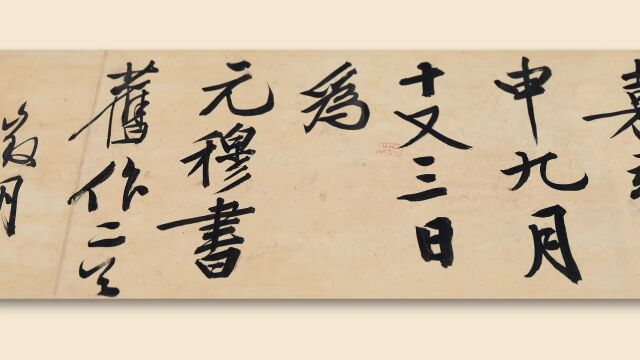 嘉
申九月
十又三日
為
元穆書
舊作二首